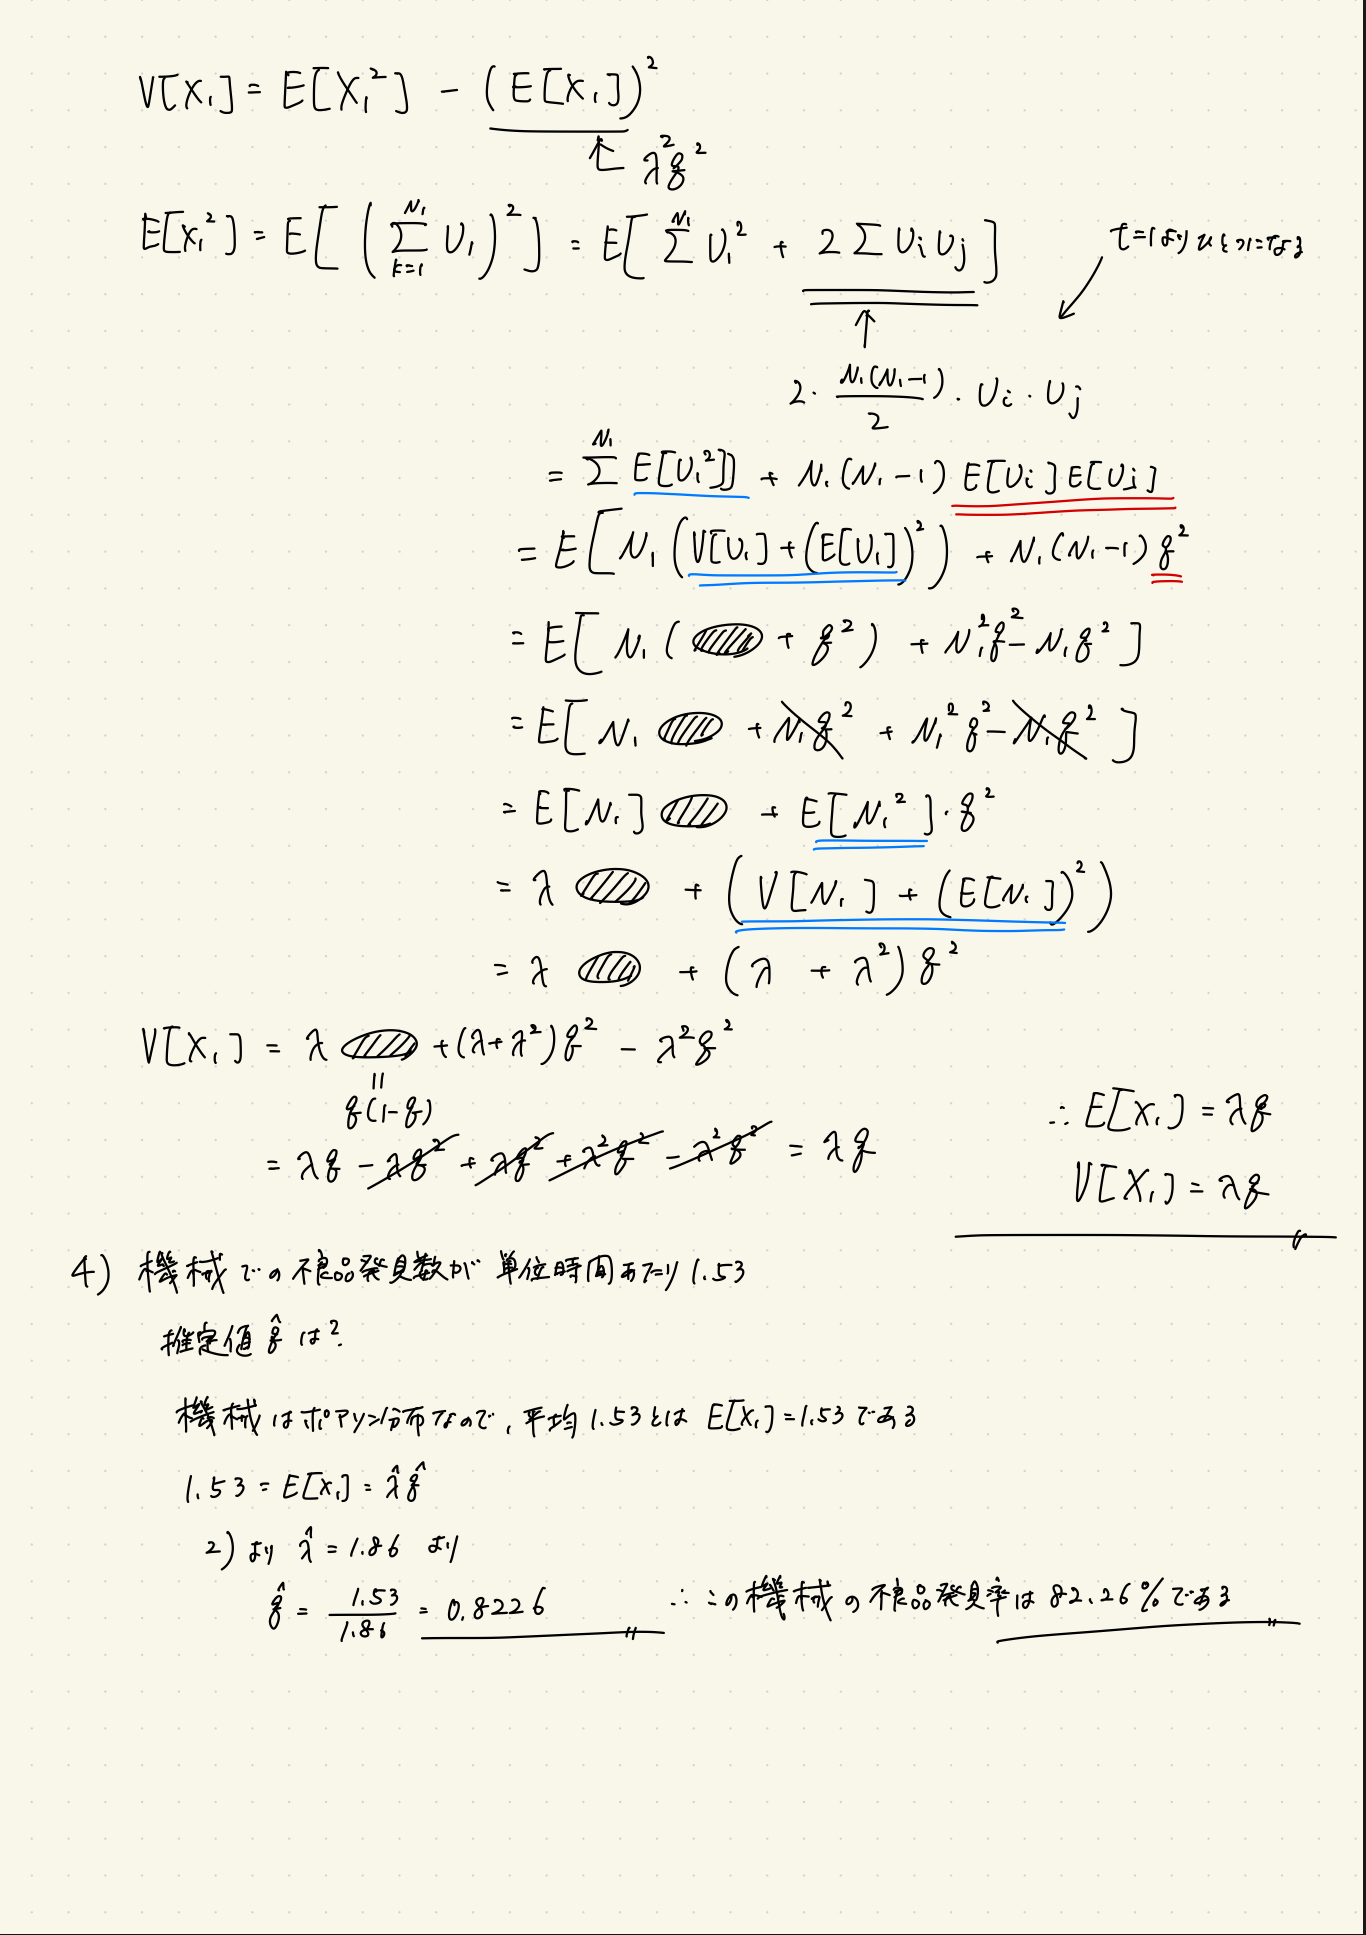 V[X₁] = E[X₁²] - (E[X₁])²
↑ λ²q²
E[X₁²] = E[(∑_{k=1}^{N₁} U₁)²] = E[∑^{N₁} U₁² + 2∑UᵢUⱼ]
t=1よりひとつになる
2・N₁(N₁-1)/2・Uᵢ・Uⱼ
= ∑^{N₁} E[U₁²]] + N₁(N₁-1) E[Uᵢ]E[Uⱼ]
= E[N₁(V[U₁]+(E[U₁])²) + N₁(N₁-1)q²
= E[N₁( + q²) + N₁²q² - N₁q²]
= E[N₁ + N₁q² + N₁²q² - N₁q²]
= E[N₁] + E[N₁²]・q²
= λ + (V[N₁] + (E[N₁])²)
= λ + (λ + λ²)q²
V[X₁] = λ + (λ+λ²)q² - λ²q²
=
q(1-q)
= λq - λq² + λq² + λ²q² - λ²q² = λq
∴ E[X₁] = λq
V[X₁] = λq
4) 機械での不良品発見数が単位時間あたり1.53
推定値 q̂ は?
機械はポアソン分布なので, 平均1.53とは E[X₁]=1.53である
1.53 = E[X₁] = λ̂q̂
2)より λ̂ = 1.86 より
q̂ = 1.53/1.86 = 0.8226
∴ この機械の不良品発見率は82.26%である